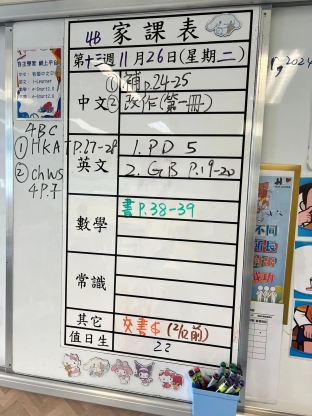 4B 家課表
第十三週 11月26日(星期二)
中文
① 補 p.24-25
② 改作(第一冊)
英文
1. PD 5
2. GB P.19-20
數學
書 P.38-39
常識
其它
交書$ (2/12前)
值日生
22
4BC
① HKAT P.27-28
② ChWS
4P.子
自主學習 網上平台
2024
不同